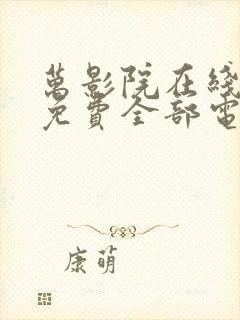 萬影院在綫
免費全部電
康萌